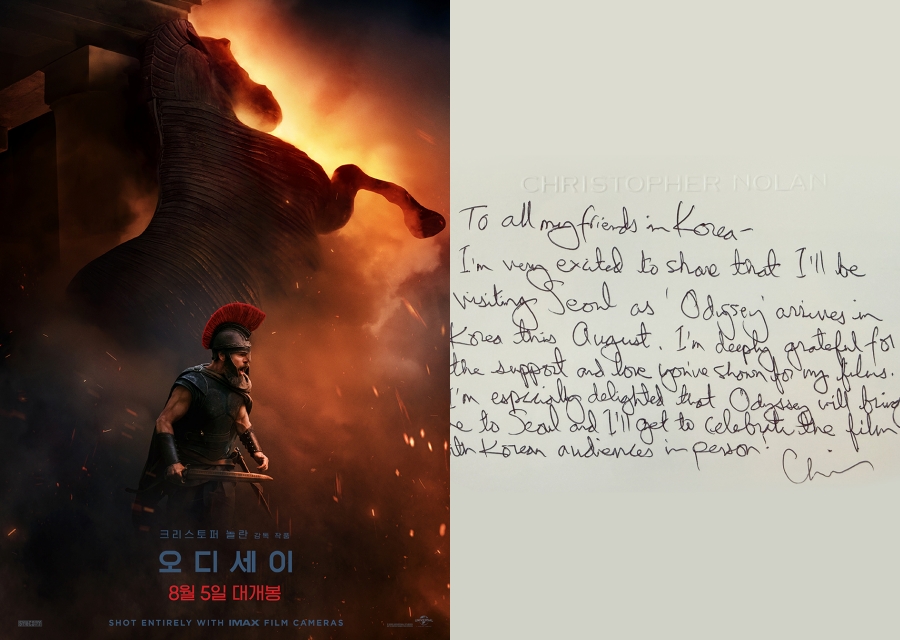 크리스토퍼 놀란 감독 작품
오디세이
8월 5일 대개봉
SHOT ENTIRELY WITH IMAX FILM CAMERAS
CHRISTOPHER NOLAN
To all my friends in Korea-
I'm very excited to share that I'll be
visiting Seoul as 'Odyssey' arrives in
Korea this August. I'm deeply grateful for
the support and love you've shown for my films.
I'm especially delighted that Odyssey will bring
e to Seoul and I'll get to celebrate the film
ith Korean audiences in person.
Chris